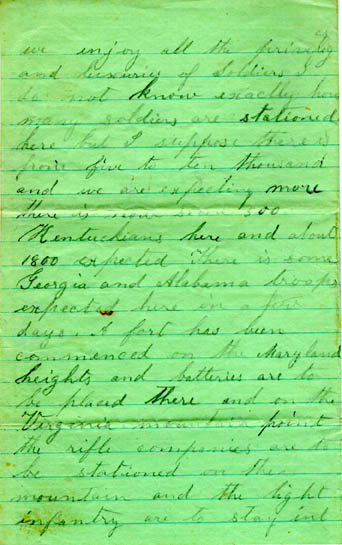 we enjoy all the privileg
and luxuries of Soldiers I
do not know exactly how
many soldiers are stationed
here but I suppose there is
from five to ten thousand
and we are expecting more
there is now some 500
Kentuckians here and about
1800 expected There is some
Georgia and Alabama troops
expected here in a few
days. A fort has been
commenced on the Maryland
heights and batteries are to
be placed there and on the
Virginia mountain point
the rifle companies are to
be stationed on the
mountain and the light
infantry are to stay in